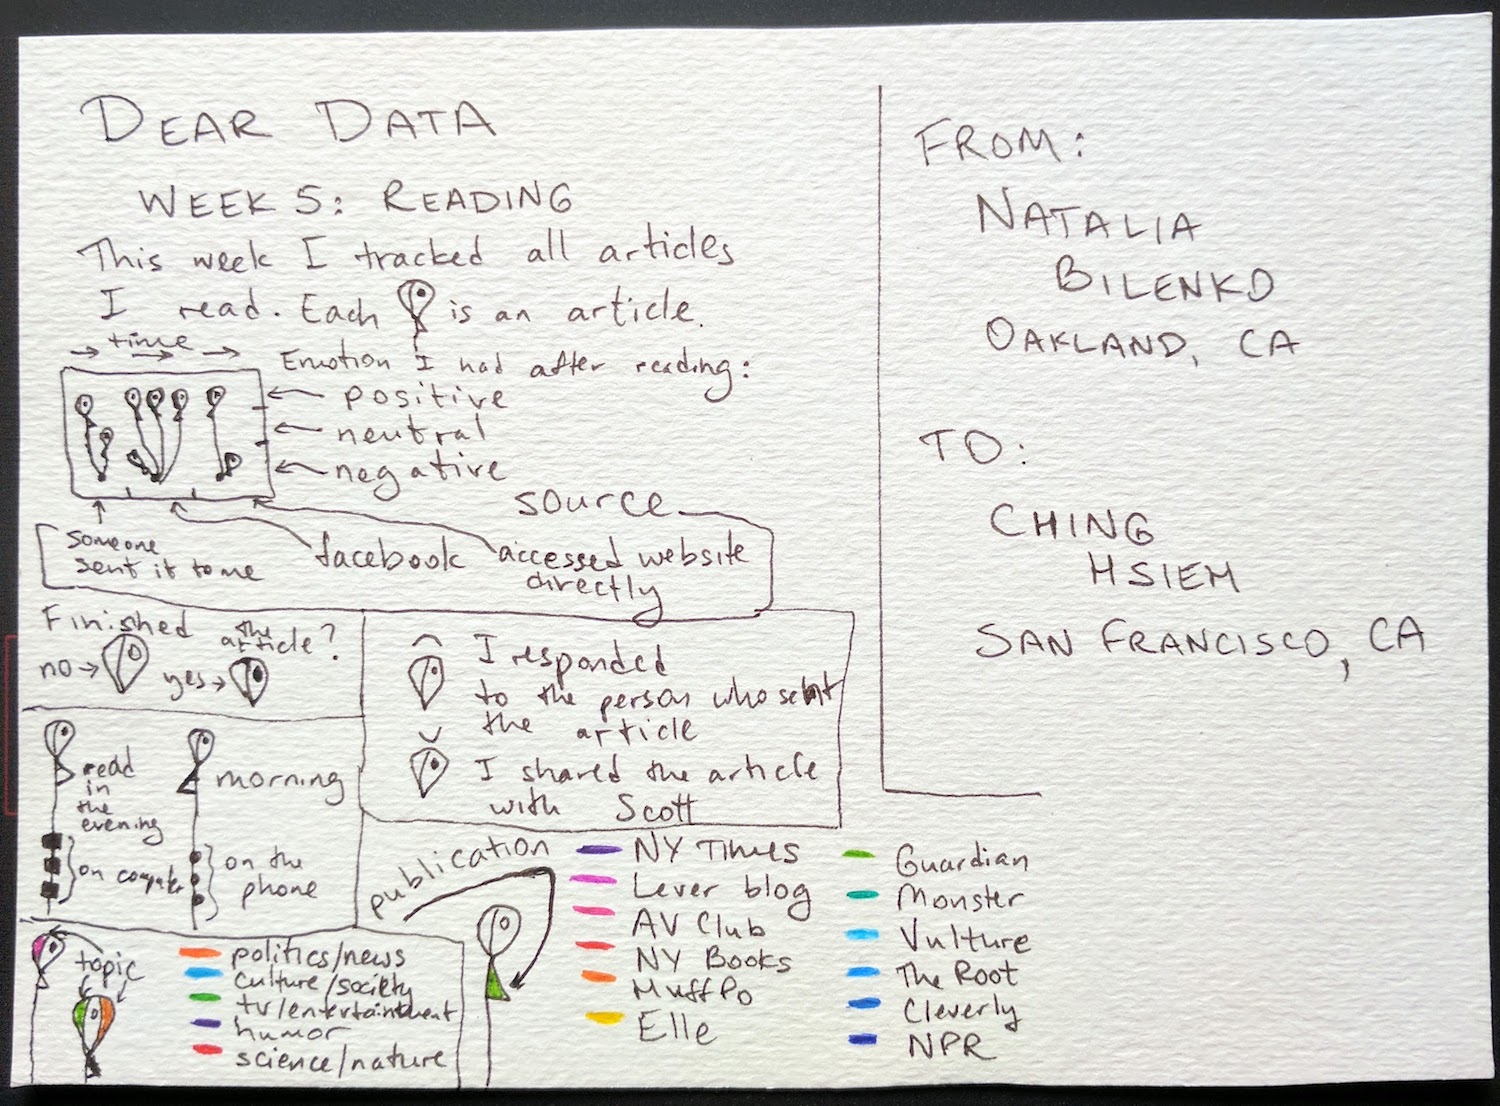 DEAR DATA
WEEK 5: READING
This week I tracked all articles
I read. Each is an article.
time
Emotion I had after reading:
positive
neutral
negative
source
someone
sent it to me
facebook
accessed website
directly
Finished the
article?
no
yes
I responded
to the person who sent
the article
I shared the article
with Scott
read
in
the
evening
on computer
morning
on the
phone
topic
politics/news
culture/society
tv/entertainment
humor
science/nature
publication
NY Times
Lever blog
AV Club
NY Books
HuffPo
Elle
Guardian
Monster
Vulture
The Root
Cleverly
NPR
FROM:
NATALIA
BILENKO
OAKLAND, CA
TO:
CHING
HSIEH
SAN FRANCISCO, CA